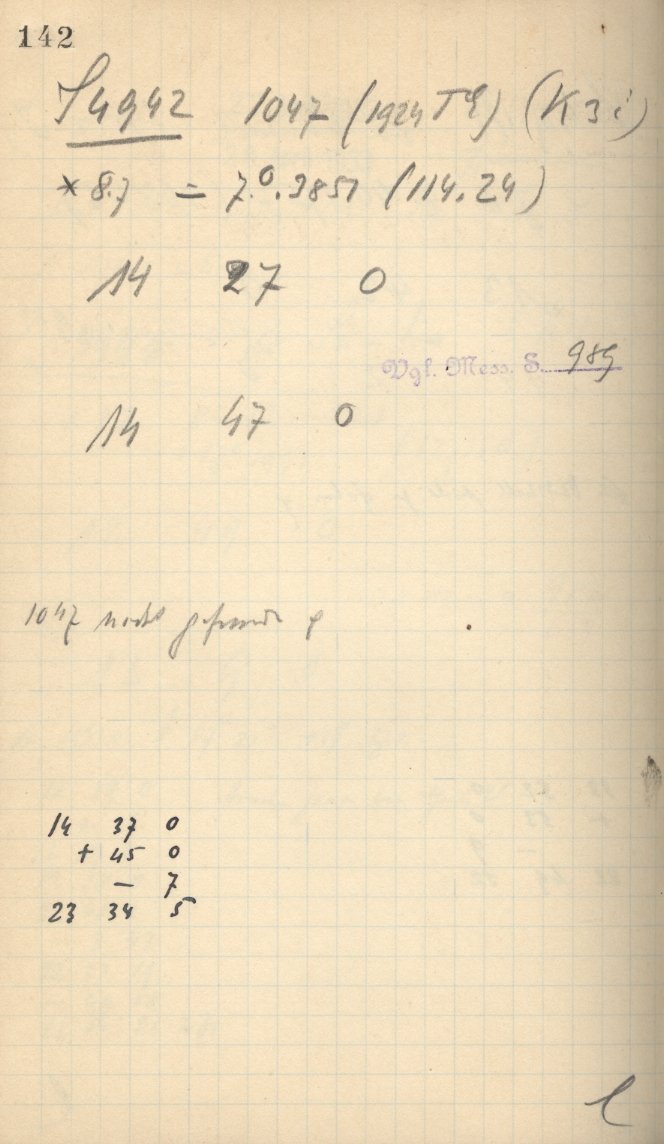 142
J4942 1047 (1924 TE) (K3i)
* 8.7 = 7.°.3851 (114.24)
14 27 0
Vgl. Mess. S. 989
14 47 0
1047 nicht gefunden
14 37 0
+ 45 0
– 7
23 34 5